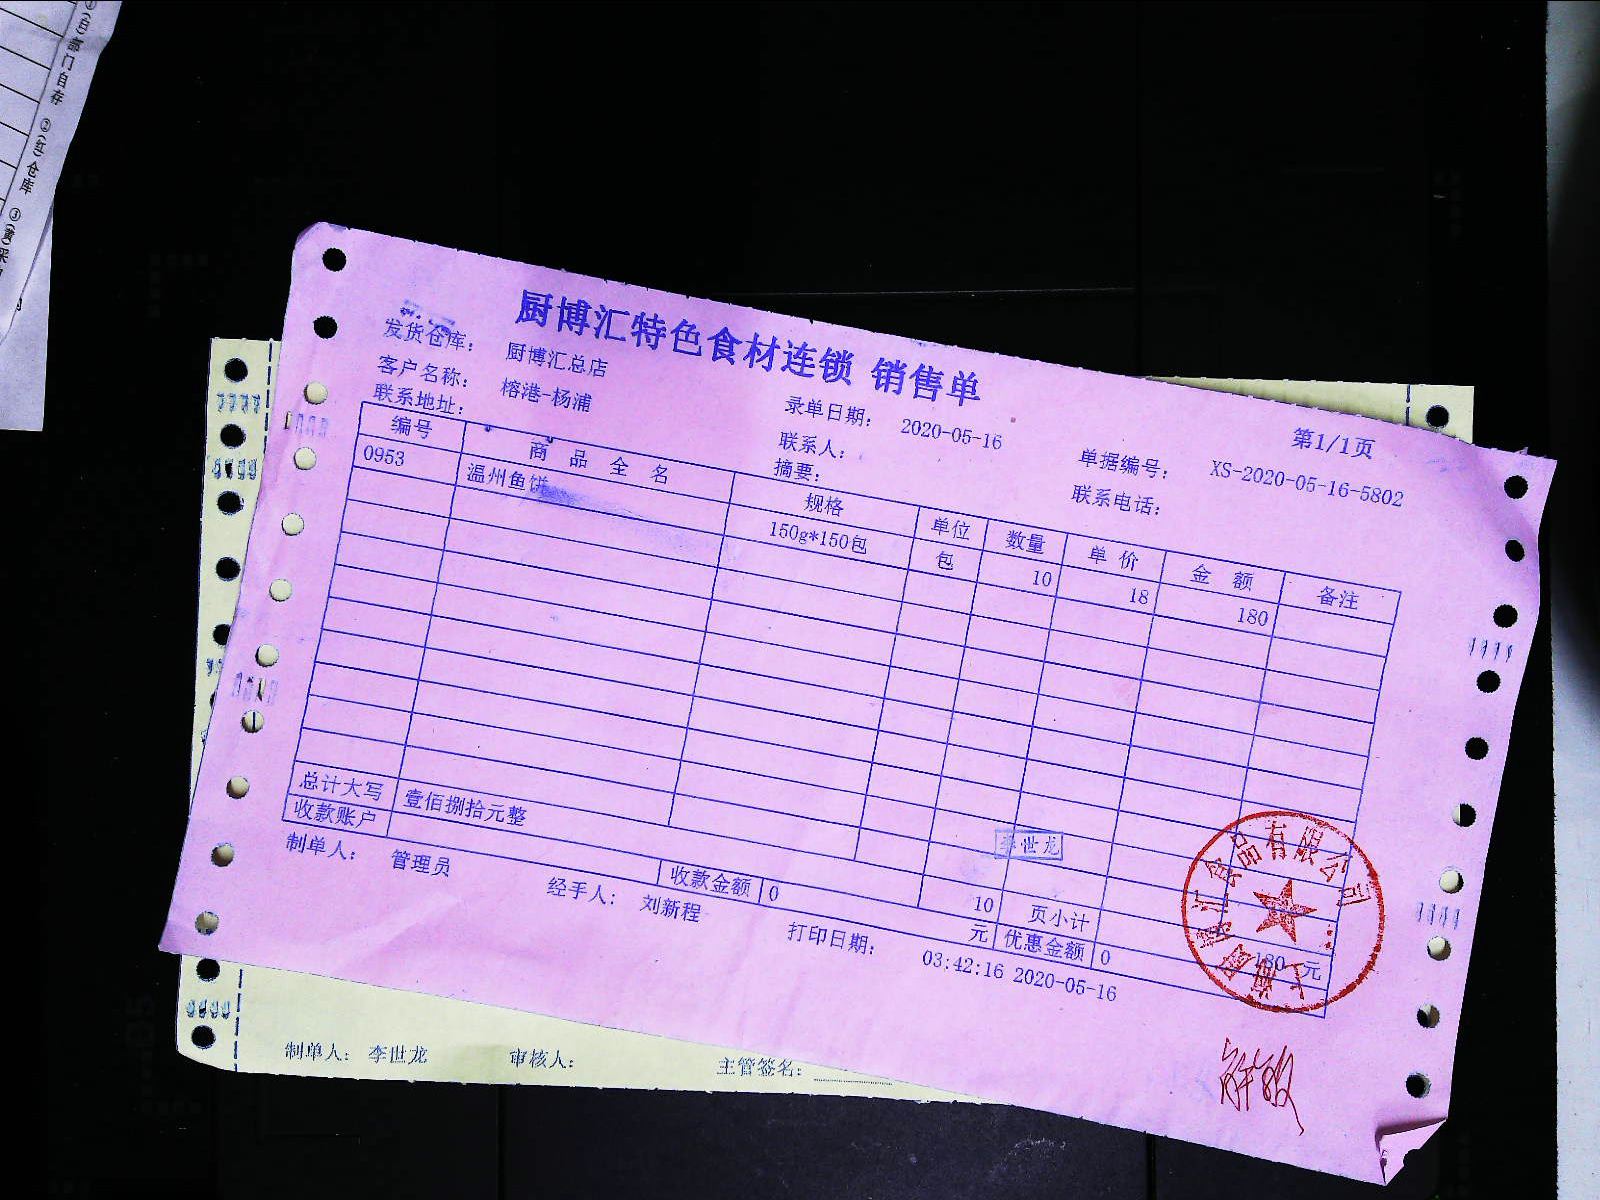 ①(白)部门自存 ②(红)仓库 ③(黄)采
厨博汇特色食材连锁 销售单
第1/1页
发货仓库： 厨博汇总店
录单日期： 2020-05-16
单据编号： XS-2020-05-16-5802
客户名称： 榕港-杨浦
联系人：
联系电话：
联系地址：
摘要：
编号 商品全名 规格 单位 数量 单价 金额 备注
0953 温州鱼饼 150g*150包 包 10 18 180
总计大写 壹佰捌拾元整 10 页小计 180 元
收款账户 收款金额 0 元 优惠金额 0
李世龙
食品有限公司
制单人： 管理员 经手人： 刘新程 打印日期： 03:42:16 2020-05-16
制单人： 李世龙 审核人： 主管签名：